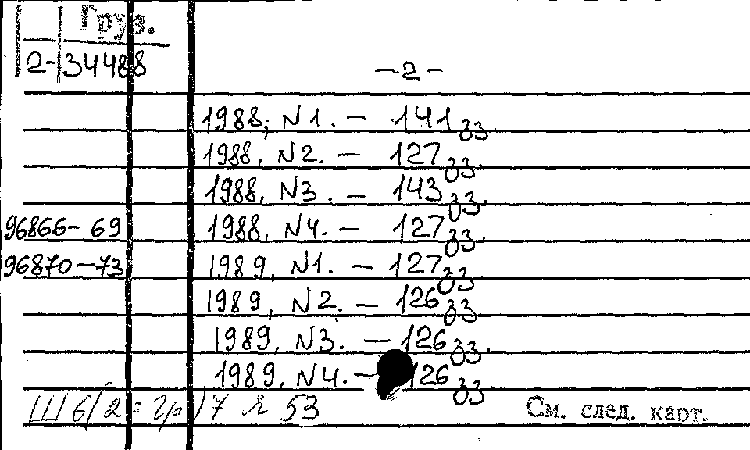 Груз.
2-34488
-2-
1988, N1. - 141 ээ.
1988, N2. - 127 ээ.
1988, N3. - 143 ээ.
96866-69 1988, N4. - 127 ээ.
96870-73 1989, N1. - 127 ээ.
1989, N2. - 126 ээ.
1989, N3. - 126 ээ.
1989, N4. - 126 ээ.
Ш 6/2 = Гр 17 л 53
См. след. карт.